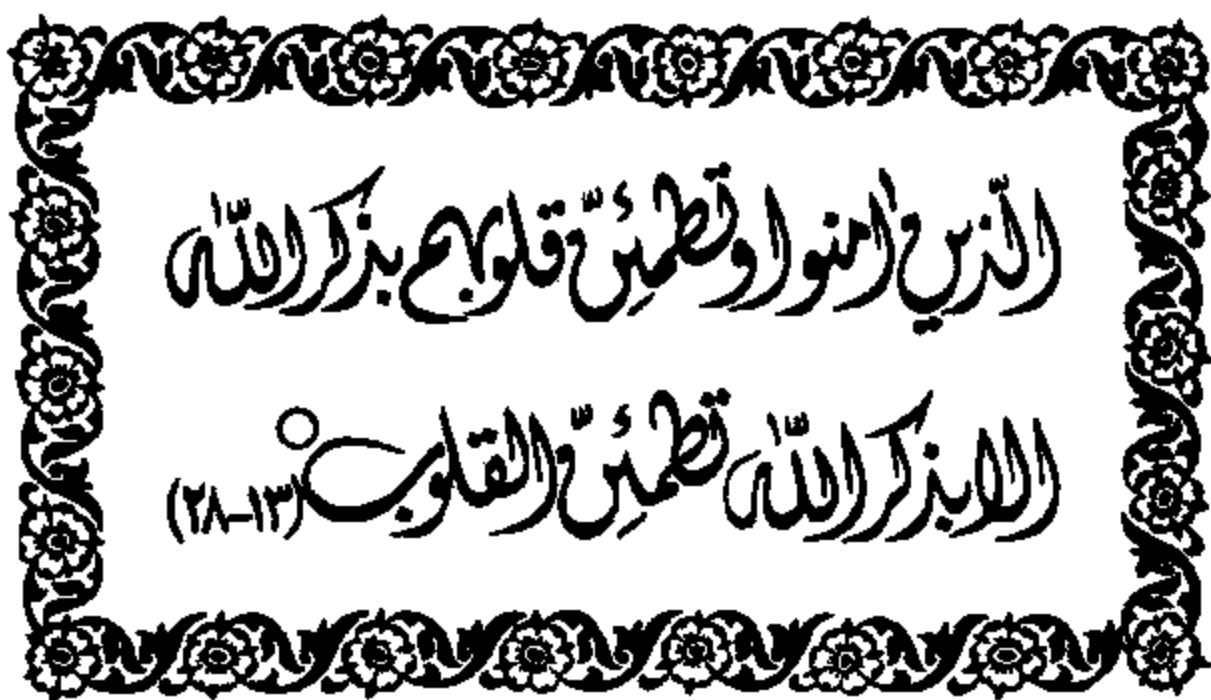 الّذين اٰمنوا وتطمئنّ قلوبهم بذكر اللّٰه
الا بذكر اللّٰه تطمئنّ القلوب ○ (١٣–٢٨)